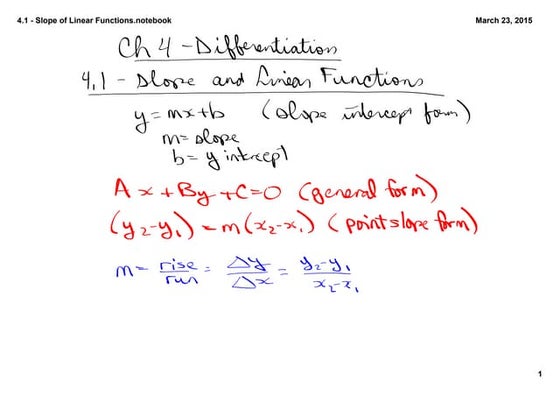 4.1 - Slope of Linear Functions.notebook
March 23, 2015
Ch 4 - Differentiation
4.1 - Slope and Linear Functions
y = mx + b (slope intercept form)
m = slope
b = y intercept
Ax + By + C = 0 (general form)
(y₂-y₁) = m(x₂-x₁) (point slope form)
m = rise/run = Δy/Δx = y₂-y₁/x₂-x₁
1